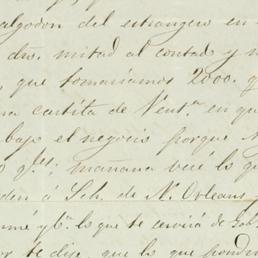 algodon del estrangero en
drs. mitad al contado y
que tomariamos 2000. q
na cartita de Vent.ⁿ en qu
bajo el negocio porque
0 q.les; mañana veré lo qu
den á Sch. de N. Orleans,
mé y b.ⁿ lo que te servirá de Gob.
te dije, que lo que pondri